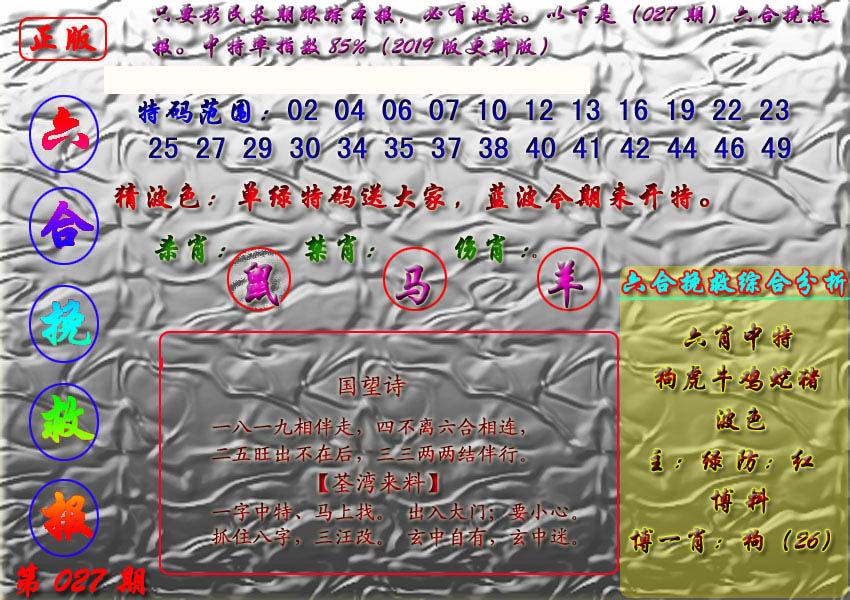 正版
只要彩民长期跟踪本报，必有收获。以下是（027期）六合挽救
报。中特率指数85%（2019版更新版）
六合挽救报
第027期
特码范围：02 04 06 07 10 12 13 16 19 22 23
25 27 29 30 34 35 37 38 40 41 42 44 46 49
猜波色：单绿特码送大家，蓝波今期来开特。
杀肖：鼠 禁肖：马 伤肖：羊。
国望诗
一八一九相伴走，四不离六合相连，
二五旺出不在后，三三两两结伴行。
【荃湾来料】
一字中特、马上找。 出入大门；要小心。
抓住八字，三汪改。 玄中自有，玄中迷。
六合挽救综合分析
六肖中特
狗虎牛鸡蛇猪
波色
主：绿防：红
博料
博一肖：狗（26）